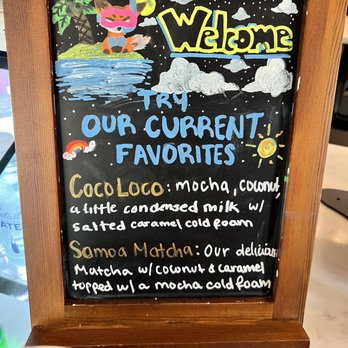 Welcome
TRY
OUR CURRENT
FAVORITES
COCO LOCO: mocha, coconut,
a little condensed milk w/
salted caramel cold foam
Samoa Matcha: Our
Matcha w/ coconut & caramel
topped w/ a mocha cold foam